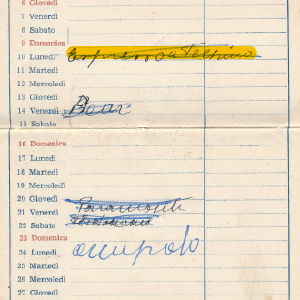 6 Giovedì
7 Venerdì
8 Sabato
9 Domenica
10 Lunedì
11 Martedì
12 Mercoledì
13 Giovedì
14 Venerdì
15 Sabato
16 Domenica
17 Lunedì
18 Martedì
19 Mercoledì
20 Giovedì
21 Venerdì
22 Sabato
23 Domenica
24 Lunedì occupato
25 Martedì
26 Mercoledì
27 Giovedì